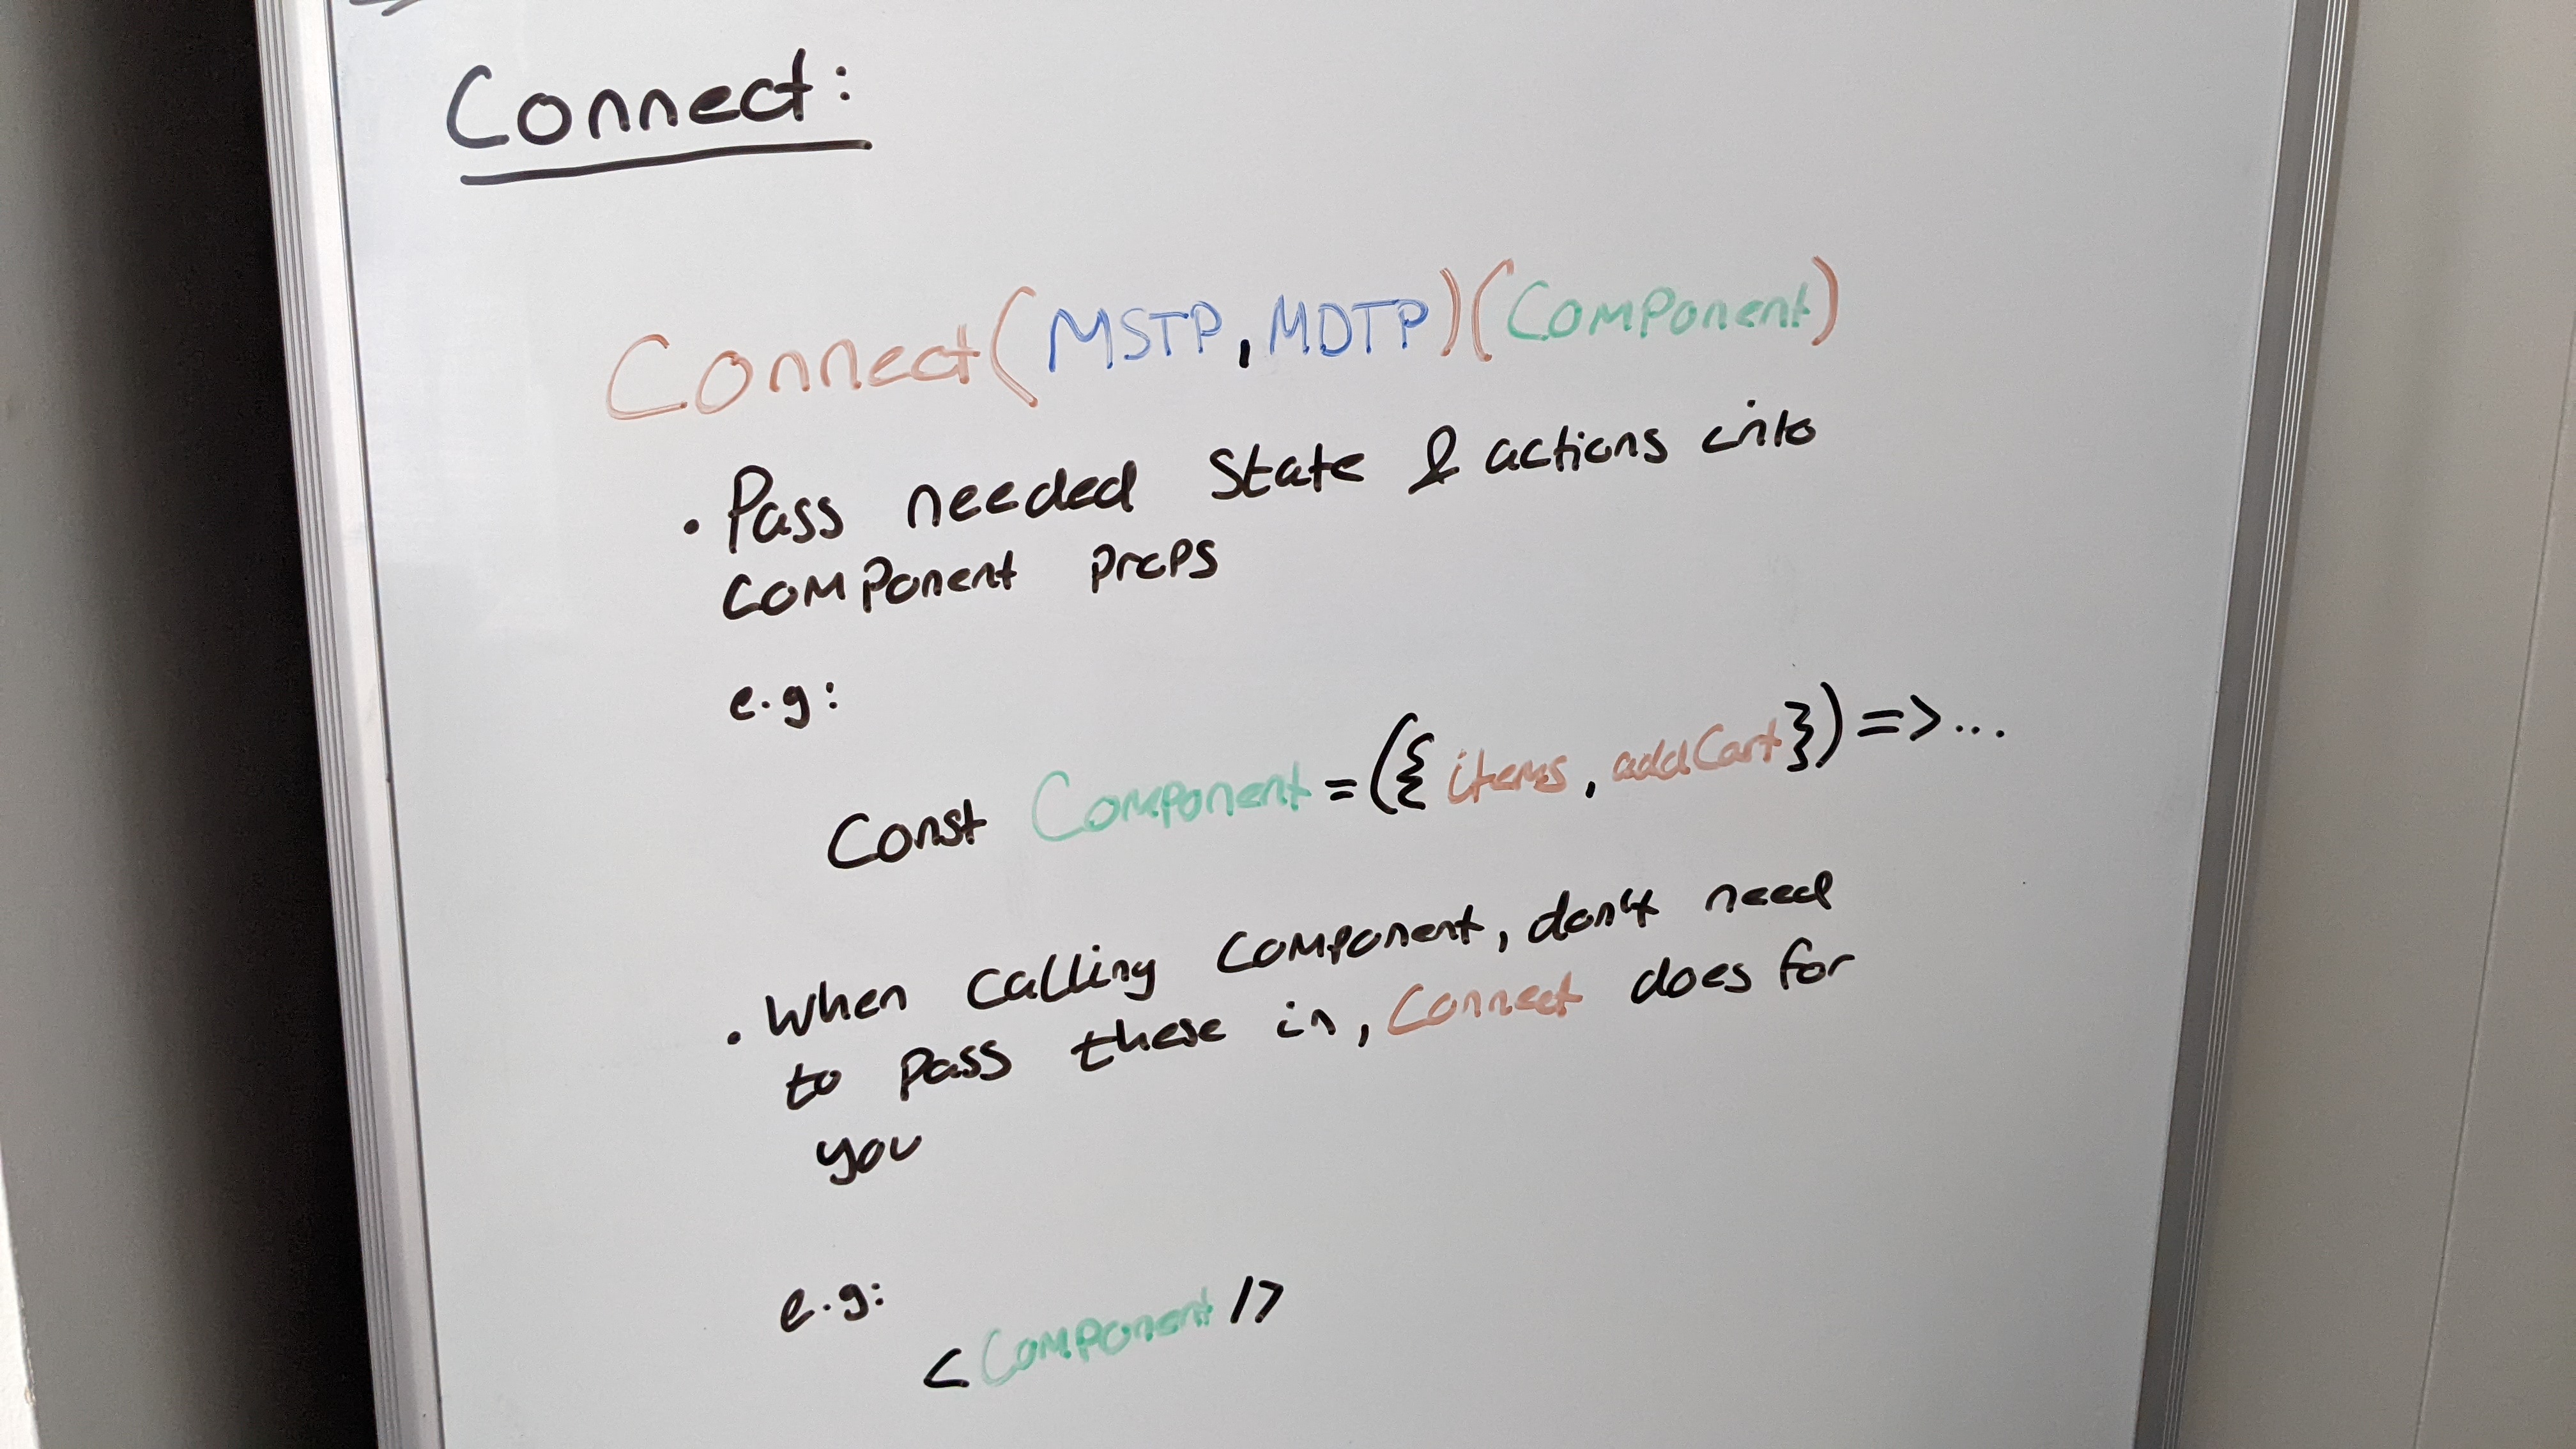 Connect:
Connect(MSTP, MDTP)(Component)
• Pass needed State & actions into
component props
e.g:
Const Component = ({ items, addCart }) => ...
• When calling component, don't need
to pass these in, Connect does for
you
e.g:
<Component />